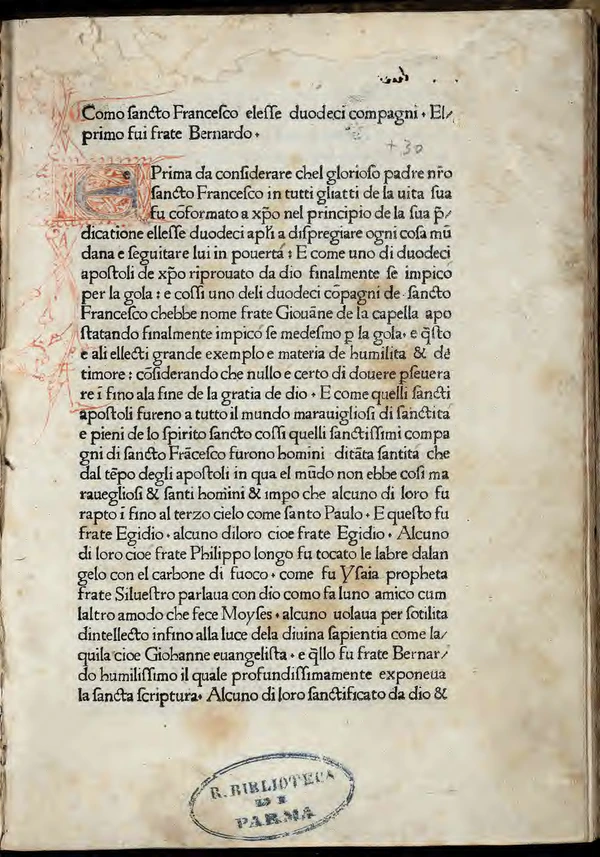 Como ſancto Franceſco eleſſe duodeci compagni · El/
primo fui frate Bernardo ·
+ 30
Prima da conſiderare chel glorioſo padre nr̄o
ſancto Franceſco in tutti gliatti de la uita ſua
fu cōformato a xp̄o nel principio de la ſua p̄/
dicatione elleſſe duodeci apl̄i a diſpregiare ogni coſa mū
dana e ſeguitare lui in pouerta : E come uno di duodeci
apoſtoli de xp̄o riprouato da dio finalmente ſe impico
per la gola : e coſſi uno deli duodeci cōpagni de ſancto
Franceſco chebbe nome frate Giouāne de la capella apo
ſtatando finalmente impico ſe medeſmo p la gola · e q̄ſto
e ali ellecti grande exemplo e materia de humilita & de
timore : cōſiderando che nullo e certo di douere pſeuera
re ī fino ala fine de la gratia de dio · E come quelli ſancti
apoſtoli fureno a tutto il mundo marauiglioſi di ſanctita
e pieni de lo ſpirito ſancto coſſi quelli ſanctiſſimi compa
gni di ſancto Frāceſco furono homini ditāta ſantita che
dal tēpo degli apoſtoli in qua el mūdo non ebbe coſi ma
raueglioſi & ſanti homini & impo che alcuno di loro fu
rapto ī fino al terzo cielo come ſanto Paulo · E queſto fu
frate Egidio · alcuno diloro cioe frate Egidio · Alcuno
di loro cioe frate Philippo longo fu tocato le labre dalan
gelo con el carbone di fuoco · come fu Yſaia propheta
frate Silueſtro parlaua con dio como fa luno amico cum
laltro amodo che fece Moyſes · alcuno uolaua per ſotilita
dintellecto infino alla luce dela diuina ſapientia come la/
quila cioe Giohanne euangeliſta · e q̄llo fu frate Bernar/
do humiliſſimo il quale profundiſſimamente exponeua
la ſancta ſcriptura · Alcuno di loro ſanctificato da dio &
R. BIBLIOTECA
DI
PARMA